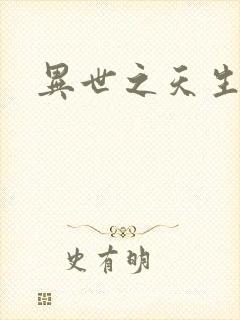 異世之天生
史有明